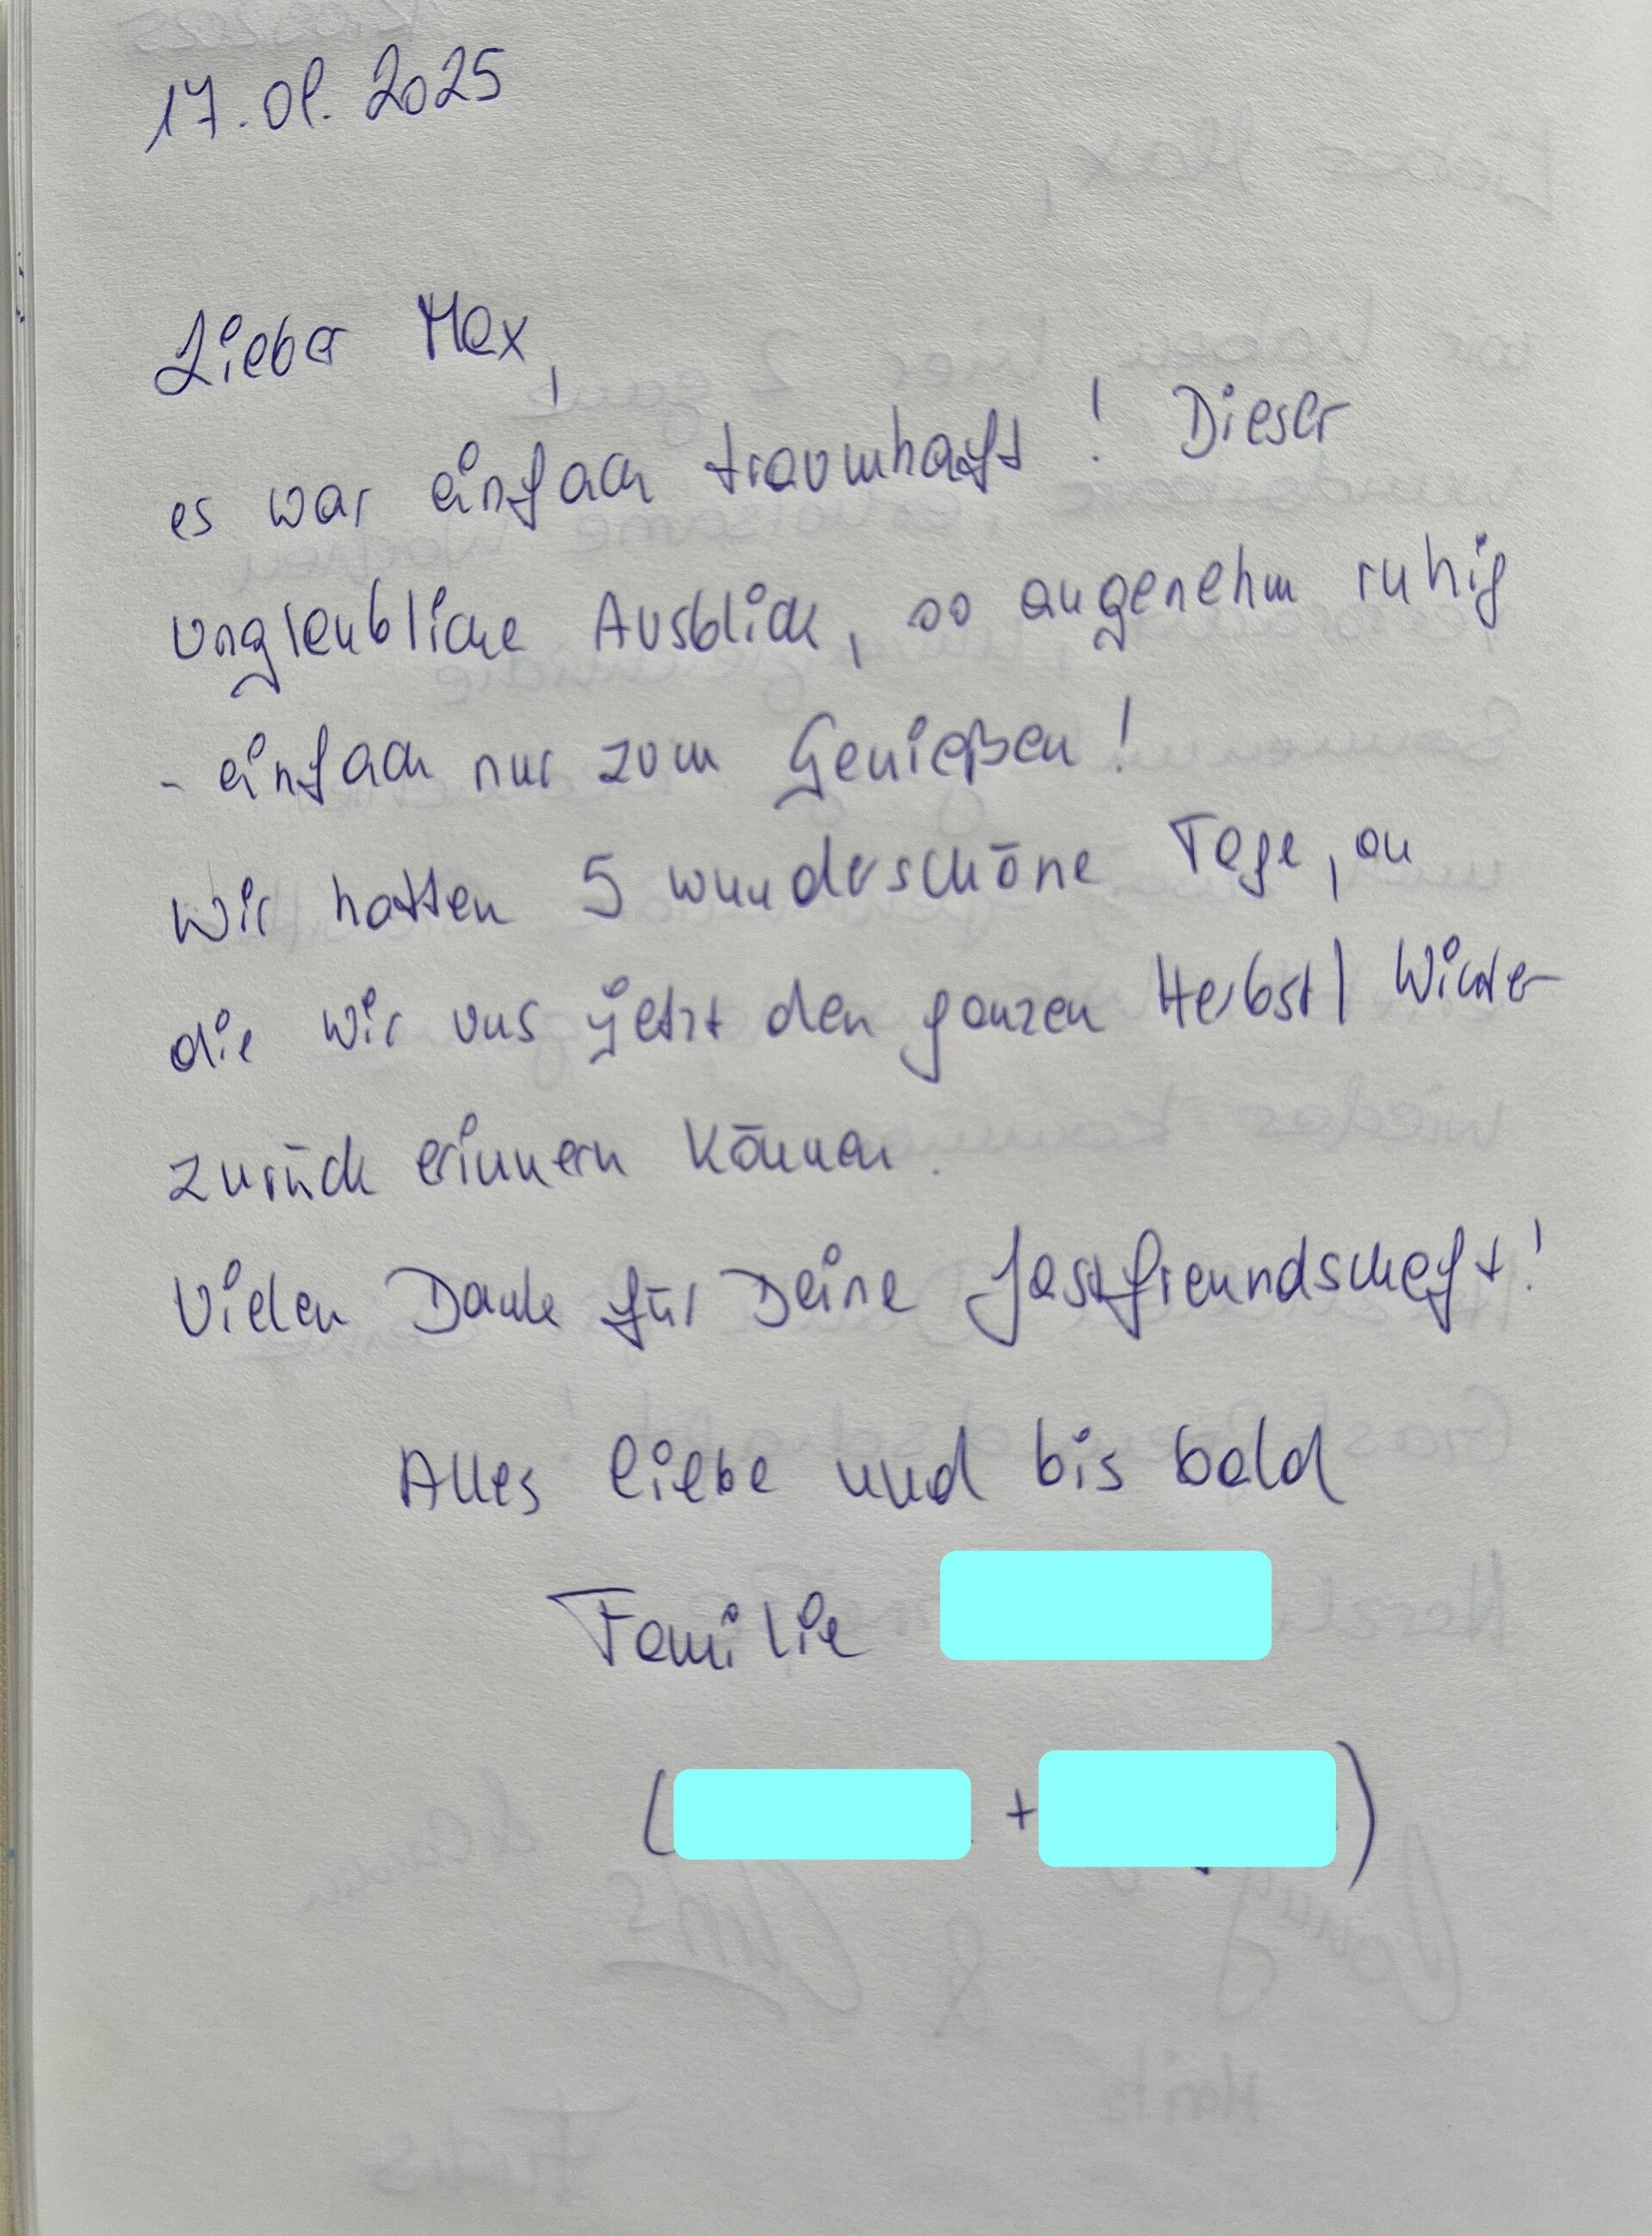 17.08.2025
Lieber Max,
es war einfach traumhaft! Dieser
unglaubliche Ausblick, so angenehm ruhig
- einfach nur zum Genießen!
Wir hatten 5 wunderschöne Tage, an
die wir uns jetzt den ganzen Herbst/Winter
zurück erinnern können.
Vielen Dank für Deine Gastfreundschaft!
Alles liebe und bis bald
Familie
( + )